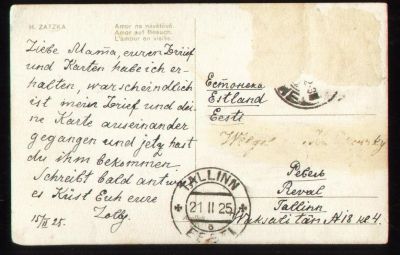 H. ZATZKA
Amor na návštěvě.
Amor auf Besuch.
L'amour en visite.
Liebe Mama, euren Brief
und Karten habe ich er-
halten, warscheindlich
ist mein Brief und dei
ne Karte auseinander
gegangen und jetz hast
du ihm bekommen
Schreibt bald
es Küst Euch eure
15/II 25.
Эстонска
Estland
Eesti
Ревель
Reval
Tallinn
Waksali tän A 18 кв 4.
TALLINN
21 II 25
EESTI